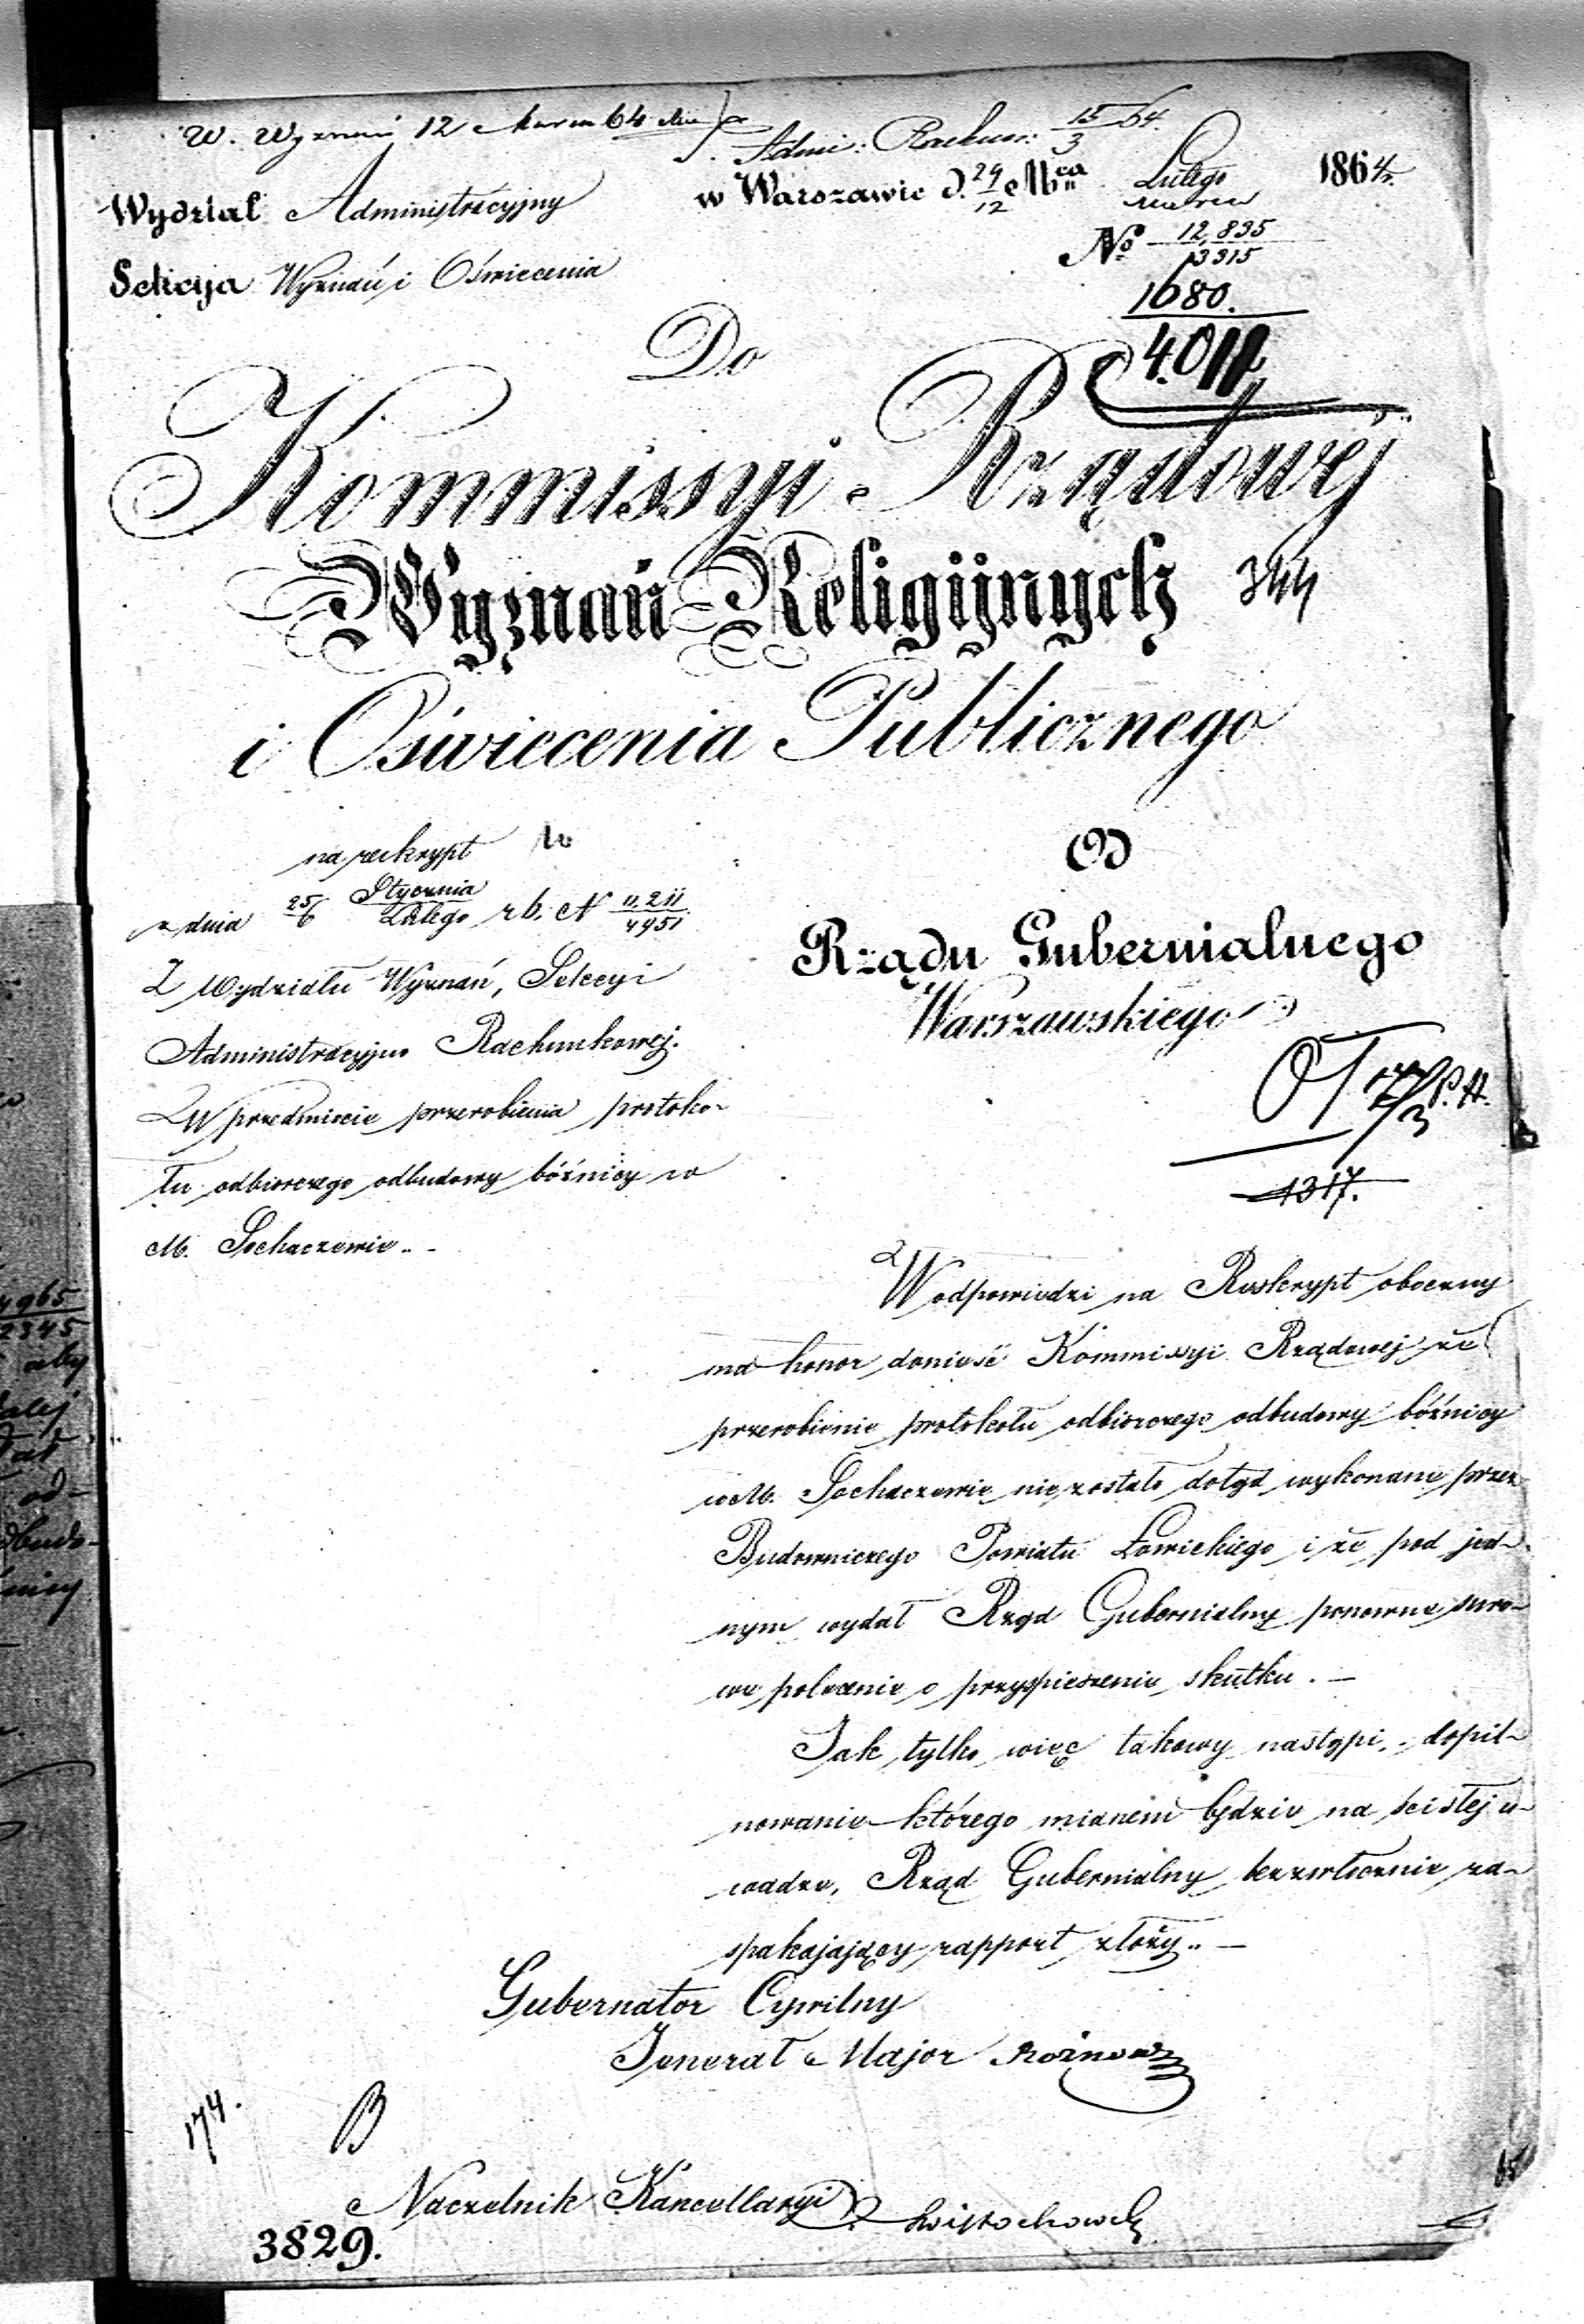 W. Wyznań 12 Marca 64
Admi: Rachun: 15/3 64.
Wydział Administracyjny
w Warszawie d. 29/12 Mca Lutego Marca 1864 r.
Sekcyja Wyznań i Oświecenia
No 12,835/3315
1680.
Do
Kommissyi Rządowej
Wyznań Religijnych
344
i Oświecenia Publicznego
na reskrypt
z dnia 25/6 Stycznia/Lutego r.b. N 11,211/4951
Z Wydziału Wyznań, Sekcyi
Administracyjno Rachunkowej.
W przedmiocie przerobienia protoko-
łu odbiorczego odbudowy bóźnicy w
M. Sochaczewie..-
Od
Rządu Gubernialnego
Warszawskiego
1317.
W odpowiedzi na Reskrypt oboczny
ma honor donieść Kommissyi Rządowej że
przerobienie protokołu odbiorczego odbudowy bóźnicy
w M. Sochaczewie nie zostało dotąd wykonane przez
Budowniczego Powiatu Łowickiego i że pod jed-
nym wydał Rząd Gubernialny ponowne suro-
we polecenie o przyspieszenie skutku. —
Jak tylko więc takowy nastąpi, dopil-
nowanie którego mianem będzie na ścisłej u-
wadze, Rząd Gubernialny bezzwłocznie za-
spakajający rapport złoży.. —
Gubernator Cywilny
Jenerał Major Rożnow
174.
B
Naczelnik Kancellaryi
3829.